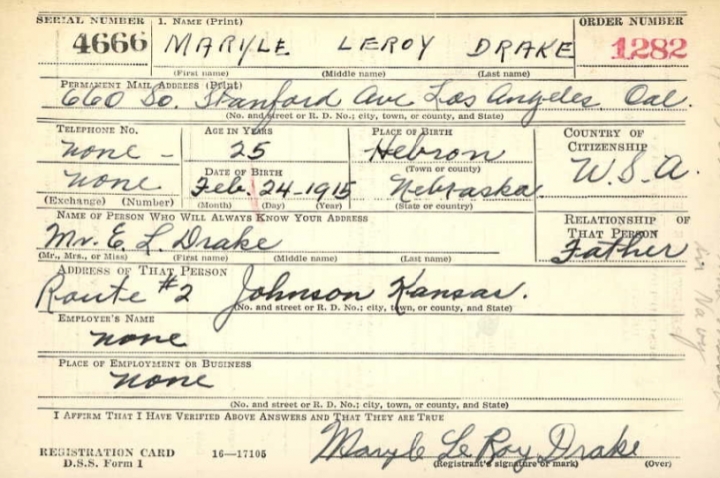 SERIAL NUMBER 1. NAME (Print) ORDER NUMBER
4666 MARYLE LEROY DRAKE 1282
(First name) (Middle name) (Last name)
PERMANENT MAIL ADDRESS (Print)
660 So. Stanford Ave Los Angeles Cal.
(No. and street or R. D. No.; city, town, or county, and State)
TELEPHONE NO. AGE IN YEARS PLACE OF BIRTH COUNTRY OF CITIZENSHIP
none - 25 Hebron U.S.A.
(Town or county)
DATE OF BIRTH
none Feb. 24-1915 Nebraska
(Exchange) (Number) (Month) (Day) (Year) (State or country)
NAME OF PERSON WHO WILL ALWAYS KNOW YOUR ADDRESS RELATIONSHIP OF THAT PERSON
Mr. E. L. Drake Father
(Mr., Mrs., or Miss) (First name) (Middle name) (Last name)
ADDRESS OF THAT PERSON
Route #2 Johnson Kansas.
(No. and street or R. D. No.; city, town, or county, and State)
EMPLOYER'S NAME
none
PLACE OF EMPLOYMENT OR BUSINESS
none
(No. and street or R. D. No.; city, town, or county, and State)
I AFFIRM THAT I HAVE VERIFIED ABOVE ANSWERS AND THAT THEY ARE TRUE
REGISTRATION CARD 16—17105 Maryle LeRoy Drake
D.S.S. Form 1 (Registrant's signature or mark) (Over)
in Navy